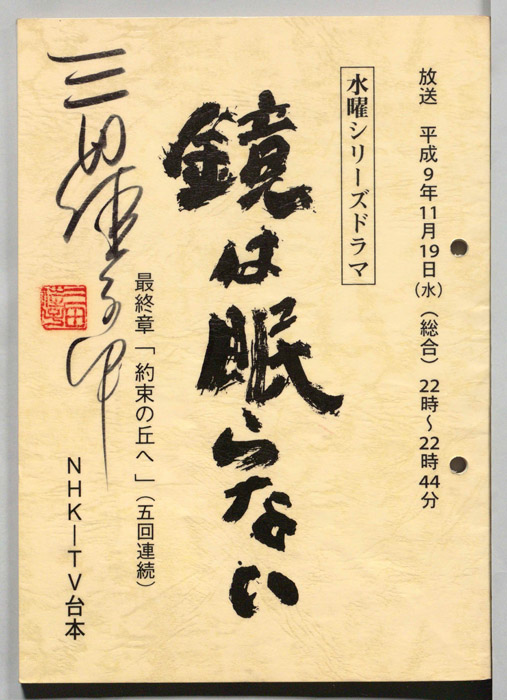 放送　平成9年11月19日(水)(総合) 22時～22時44分
水曜シリーズドラマ
鏡は眠らない
最終章「約束の丘へ」(五回連続)
NHK―TV台本